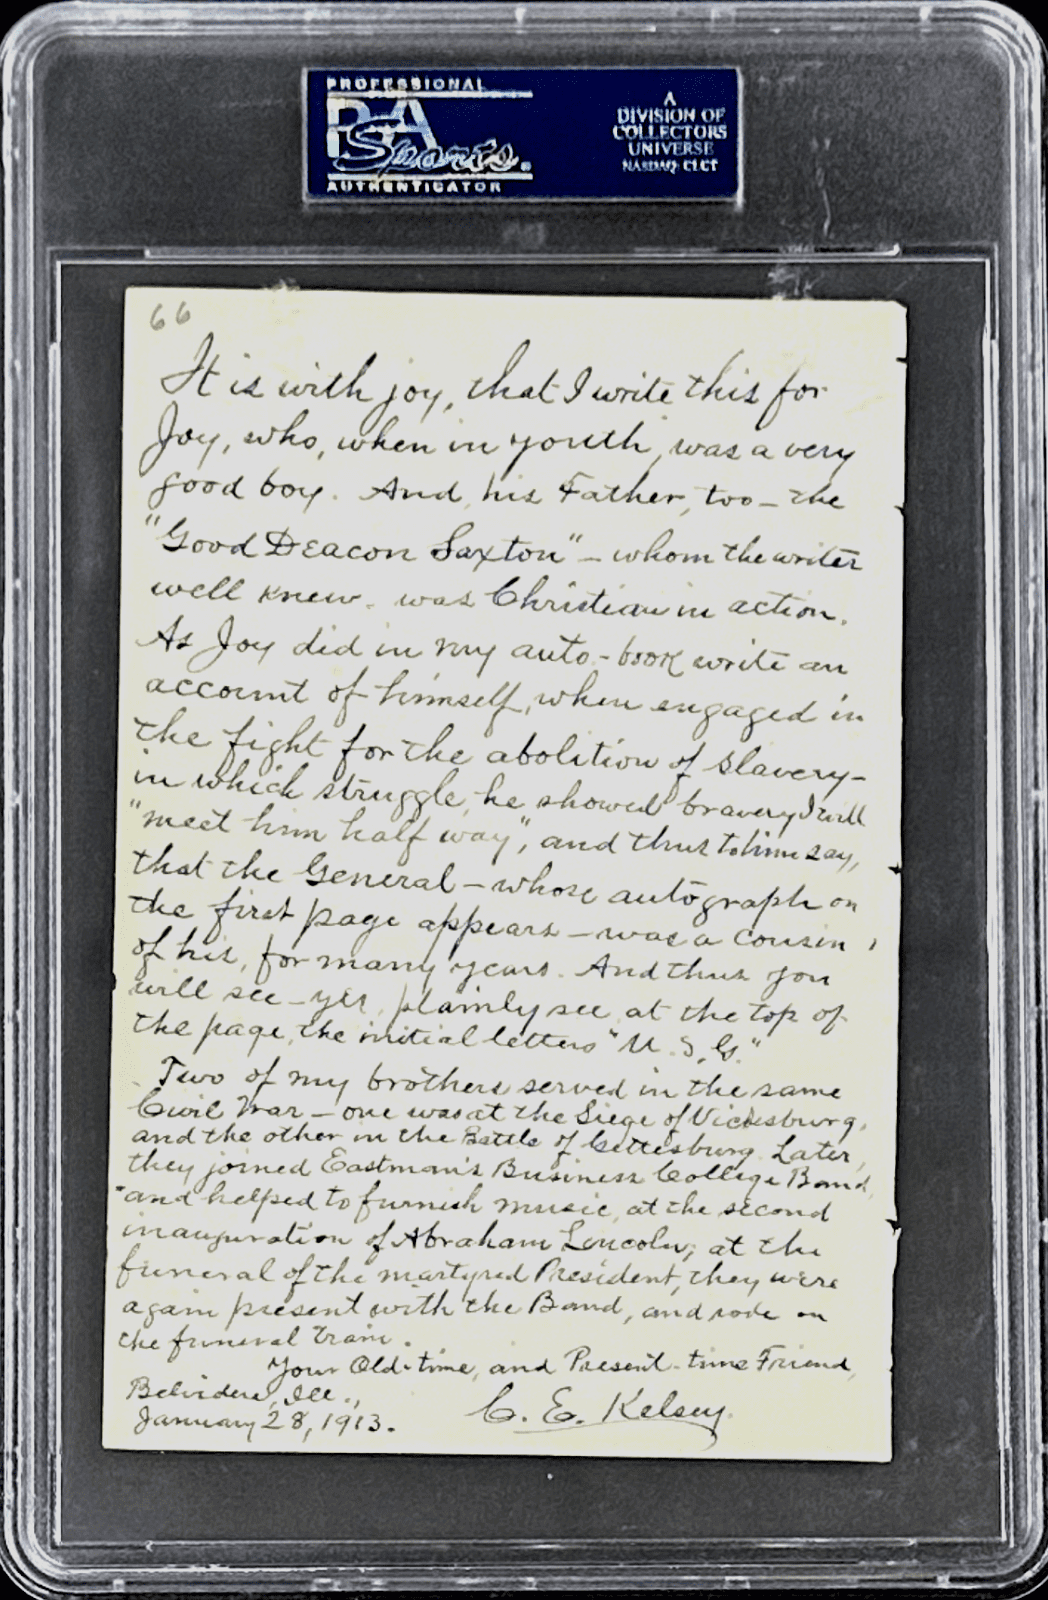 PROFESSIONAL
PSA
Sports®
AUTHENTICATOR
A
DIVISION OF
COLLECTORS
UNIVERSE
NASDAQ: CLCT
66
It is with joy, that I write this for
Joy, who, when in youth, was a very
good boy. And, his Father, too – the
"Good Deacon Saxton" – whom the writer
well knew – was Christian in action.
As Joy did in my auto-book write an
account of himself, when engaged in
the fight for the abolition of slavery –
in which struggle, he showed bravery I will
"meet him half way", and thus to him say,
that the General – whose autograph on
the first page appears – was a cousin
of his, for many years. And thus you
will see – yes, plainly see, at the top of
the page, the initial letters "U. S. G."
Two of my brothers served in the same
Civil War – one was at the Siege of Vicksburg,
and the other in the Battle of Gettesburg. Later,
they joined Eastman's Business College Band,
and helped to furnish music, at the second
inauguration of Abraham Lincoln; at the
funeral of the martyred President, they were
again present with the Band, and rode on
the funeral train.
Your Old-time, and Present-time Friend,
Belvidere, Ill.,
January 28, 1913.
C. E. Kelsey.